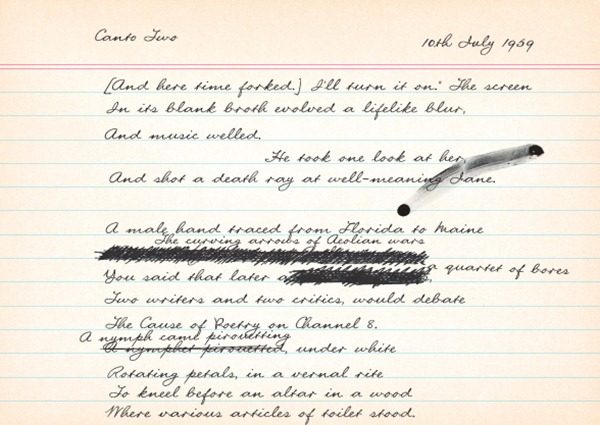 Canto Two
10th July 1959
[And here time forked.] I'll turn it on." The screen
In its blank broth evolved a lifelike blur,
And music welled.
He took one look at her,
And shot a death ray at well-meaning Jane.
A male hand traced from Florida to Maine
The curving arrows of Aeolian wars
You said that later a quartet of bores
Two writers and two critics, would debate
The Cause of Poetry on Channel 8.
A nymph came pirouetting
A nymphet pirouetted, under white
Rotating petals, in a vernal rite
To kneel before an altar in a wood
Where various articles of toilet stood.